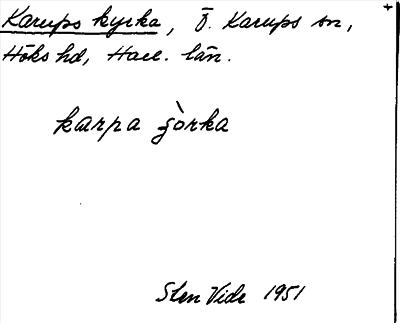 Karups kyrka, Ö. Karups sn, +
Höks hd, Hall. län.
karpa ʒòrka
Sten Vide 1951